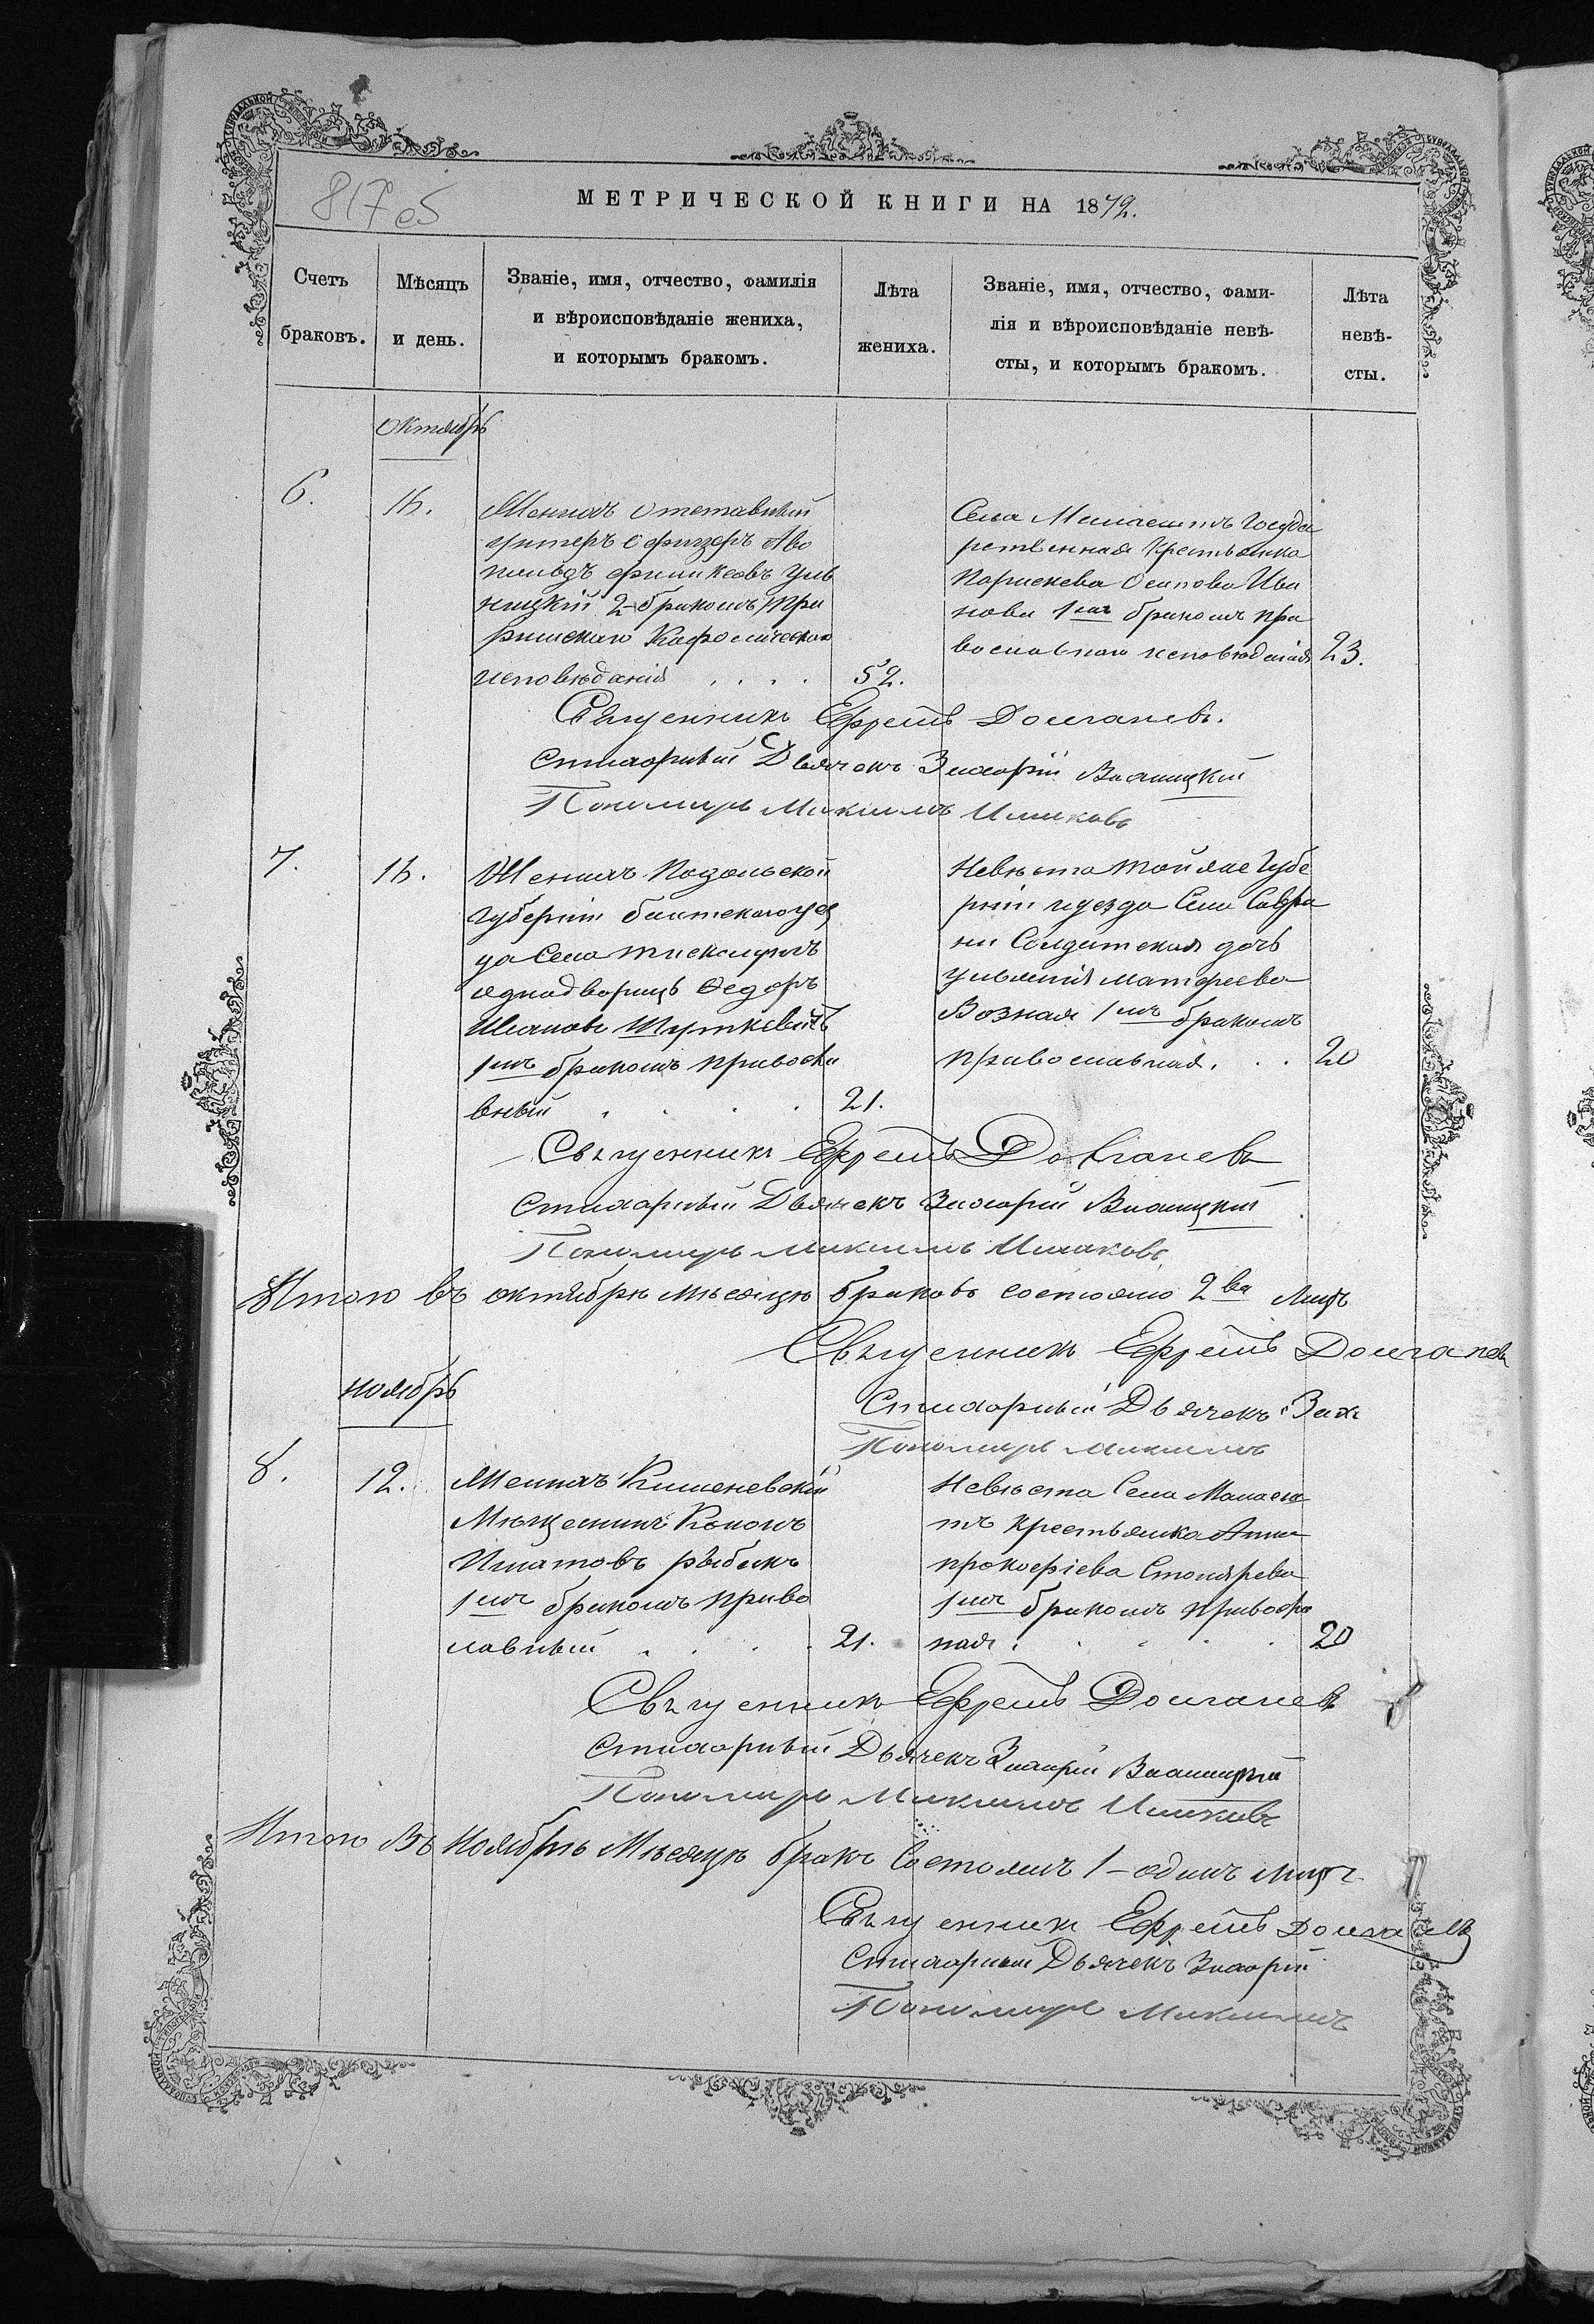 817об
МЕТРИЧЕСКОЙ КНИГИ НА 1872.
Счетъ браковъ.
Мѣсяцъ и день.
Званіе, имя, отчество, фамилія
и вѣроисповѣданіе жениха,
и которымъ бракомъ.
Лѣта жениха.
Званіе, имя, отчество, фами-
лія и вѣроисповѣданіе невѣ-
сты, и которымъ бракомъ.
Лѣта невѣ-
сты.
октябрь
6.
16.
Женихъ отставный
унтеръ офицеръ
2 бракомъ
римскаго Кафолическаго
исповѣданія
52.
Села Государ
ственная крестьянка
Параскева Осипова Ива
нова 1мъ бракомъ пра
вославнаго исповѣданія
23.
Священникъ Ефремъ Долганевъ.
Стихарный Дьячекъ Захарій
Пономарь Максимъ
7.
16.
Женихъ Подольской
губерніи Балтскаго уез
да Села
аднадворецъ Федоръ
Ивановъ Шуткевичъ
1мъ бракомъ правосла
вный
21.
Невѣста той же Губе
рніи уезда Села Савра
ни Солдатская дочь
Ульянія Матфеева
Возная 1мъ бракомъ
православная.
20
Священникъ Ефремъ Долганевъ
Стихарный Дьячекъ Захарій
Пономарь Максимъ
Итого въ октябрѣ мѣсяцѣ браковъ состояло 2ва
Священникъ Ефремъ Долганевъ
Стихарный Дьячекъ Заха
Пономарь Максимъ
ноябрь
8.
12.
Женихъ Кишеневскій
Мѣщанинъ Кононъ
Игнатовъ Рыбакъ
1мъ бракомъ право
славный
21.
Невѣста Села
крестьянка Анна
Прокофіева Столярева
1мъ бракомъ правосла
ная
20
Священникъ Ефремъ Долганевъ
Стихарный Дьячекъ Захарій
Пономарь Максимъ
Итого Въ Ноябрѣ Мѣсяцѣ бракъ Состоялъ 1-одинъ
Священникъ Ефремъ Долганевъ
Стихарный Дьячекъ Захарій
Пономарь Максимъ